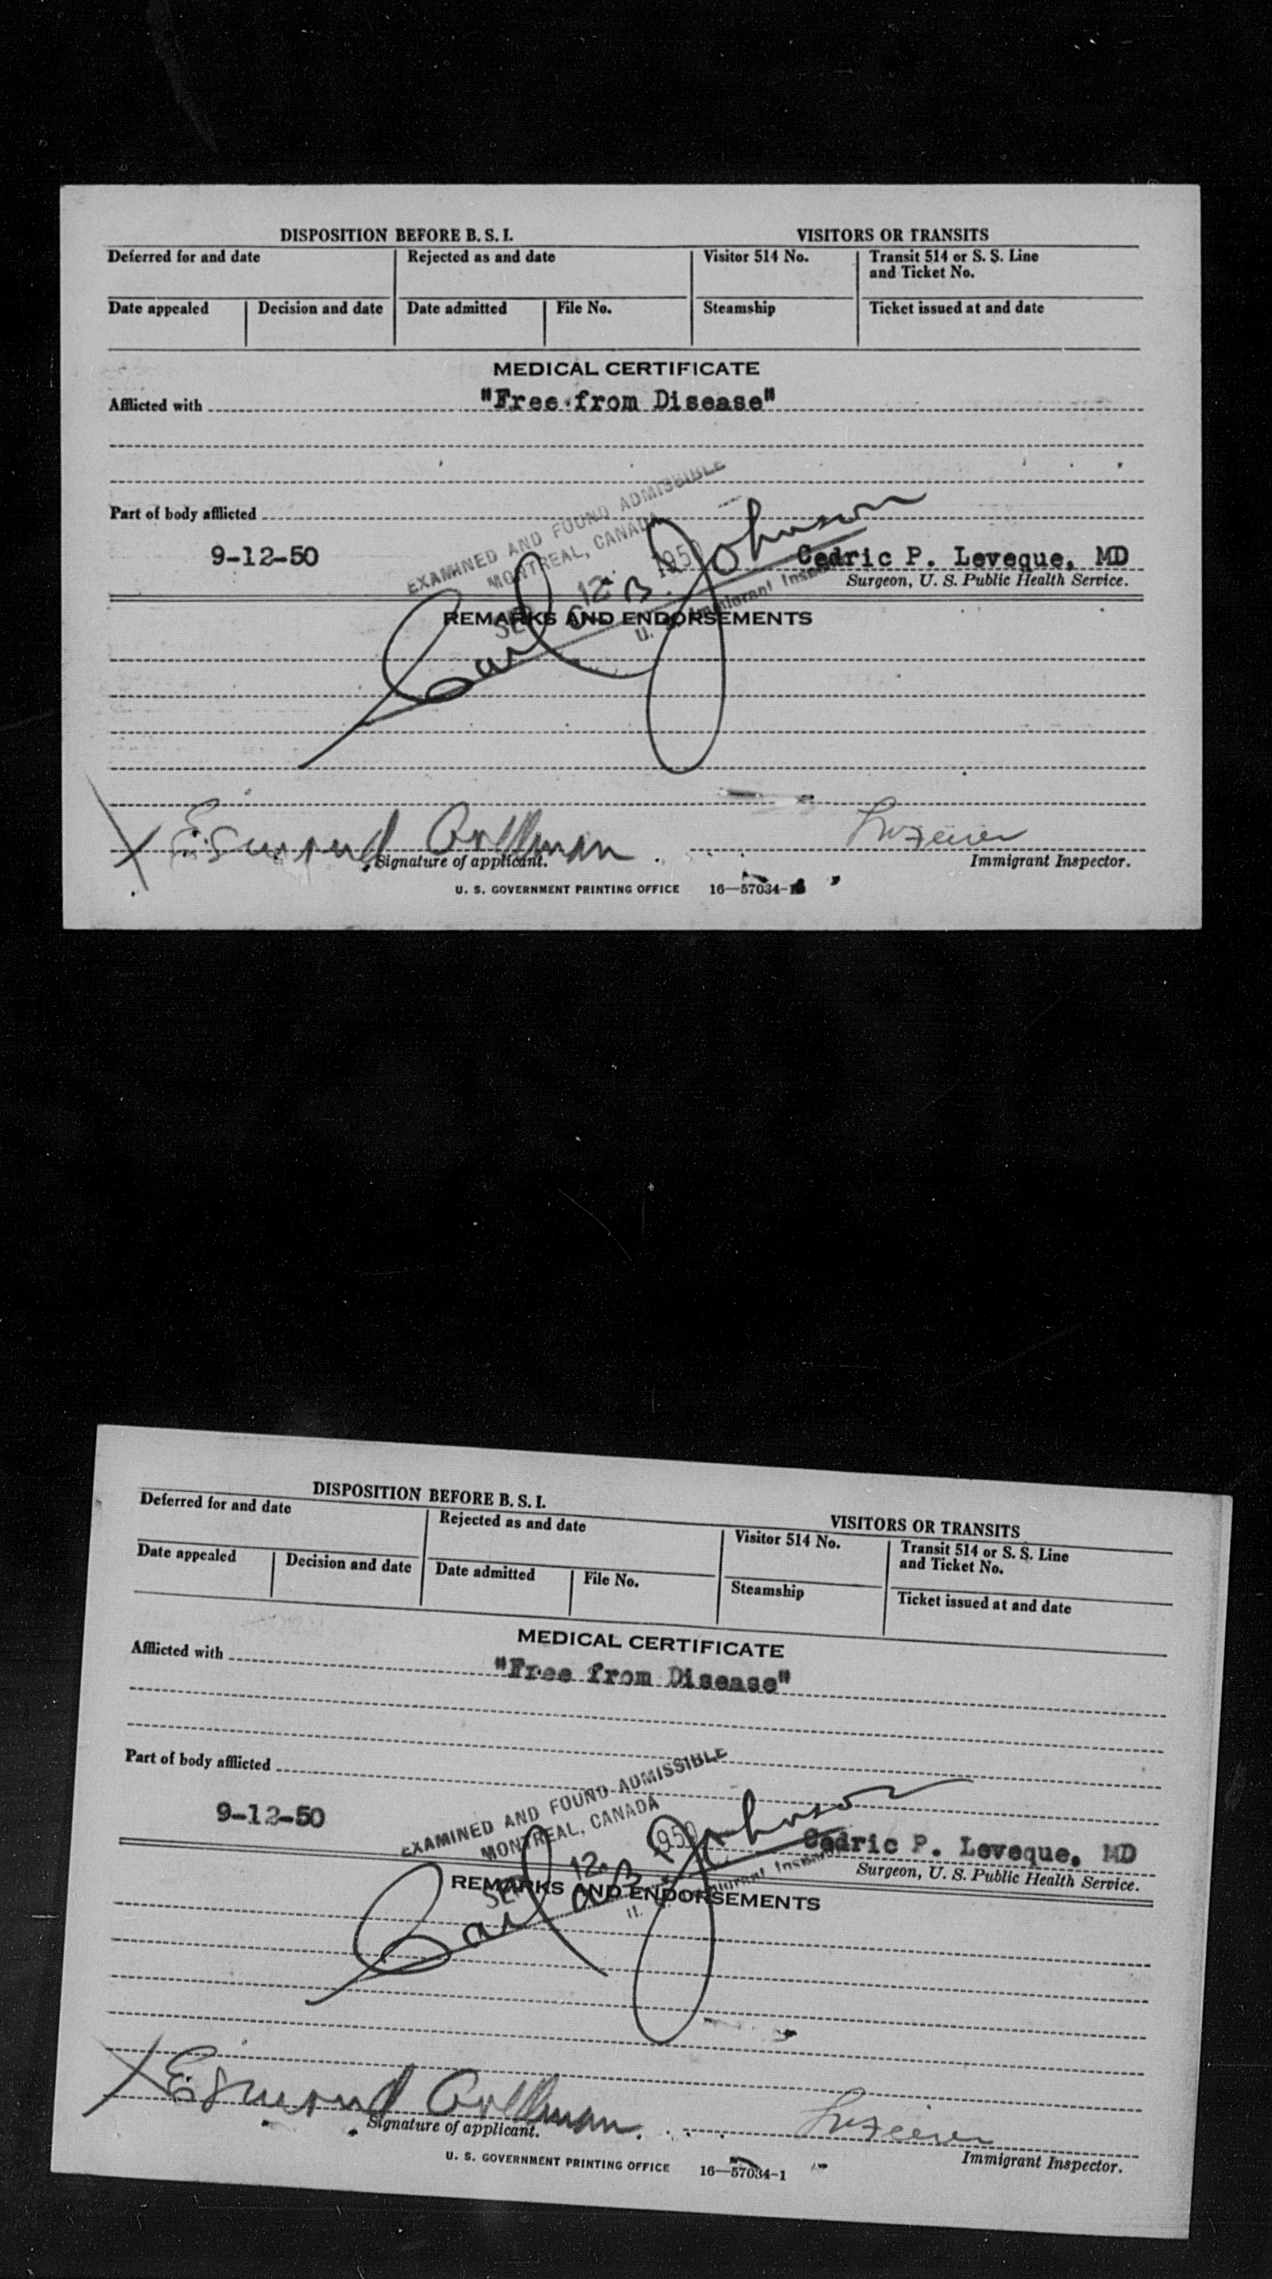 DISPOSITION BEFORE B. S. I.
VISITORS OR TRANSITS
Deferred for and date
Rejected as and date
Visitor 514 No.
Transit 514 or S. S. Line
and Ticket No.
Date appealed
Decision and date
Date admitted
File No.
Steamship
Ticket issued at and date
MEDICAL CERTIFICATE
Afflicted with "Free from Disease"
Part of body afflicted
EXAMINED AND FOUND ADMISSIBLE
MONTREAL, CANADA
SEP 12 1950
U. S. Immigrant Inspector
Carl B. Johnson
9-12-50
Cedric P. Leveque, MD
Surgeon, U. S. Public Health Service.
REMARKS AND ENDORSEMENTS
X Esmond
Signature of applicant.
Immigrant Inspector.
U. S. GOVERNMENT PRINTING OFFICE 16—57034-1
DISPOSITION BEFORE B. S. I.
VISITORS OR TRANSITS
Deferred for and date
Rejected as and date
Visitor 514 No.
Transit 514 or S. S. Line
and Ticket No.
Date appealed
Decision and date
Date admitted
File No.
Steamship
Ticket issued at and date
MEDICAL CERTIFICATE
Afflicted with "Free from Disease"
Part of body afflicted
EXAMINED AND FOUND ADMISSIBLE
MONTREAL, CANADA
SEP 12 1950
U. S. Immigrant Inspector
Carl B. Johnson
9-12-50
Cedric P. Leveque, MD
Surgeon, U. S. Public Health Service.
REMARKS AND ENDORSEMENTS
X Esmond
Signature of applicant.
Immigrant Inspector.
U. S. GOVERNMENT PRINTING OFFICE 16—57034-1